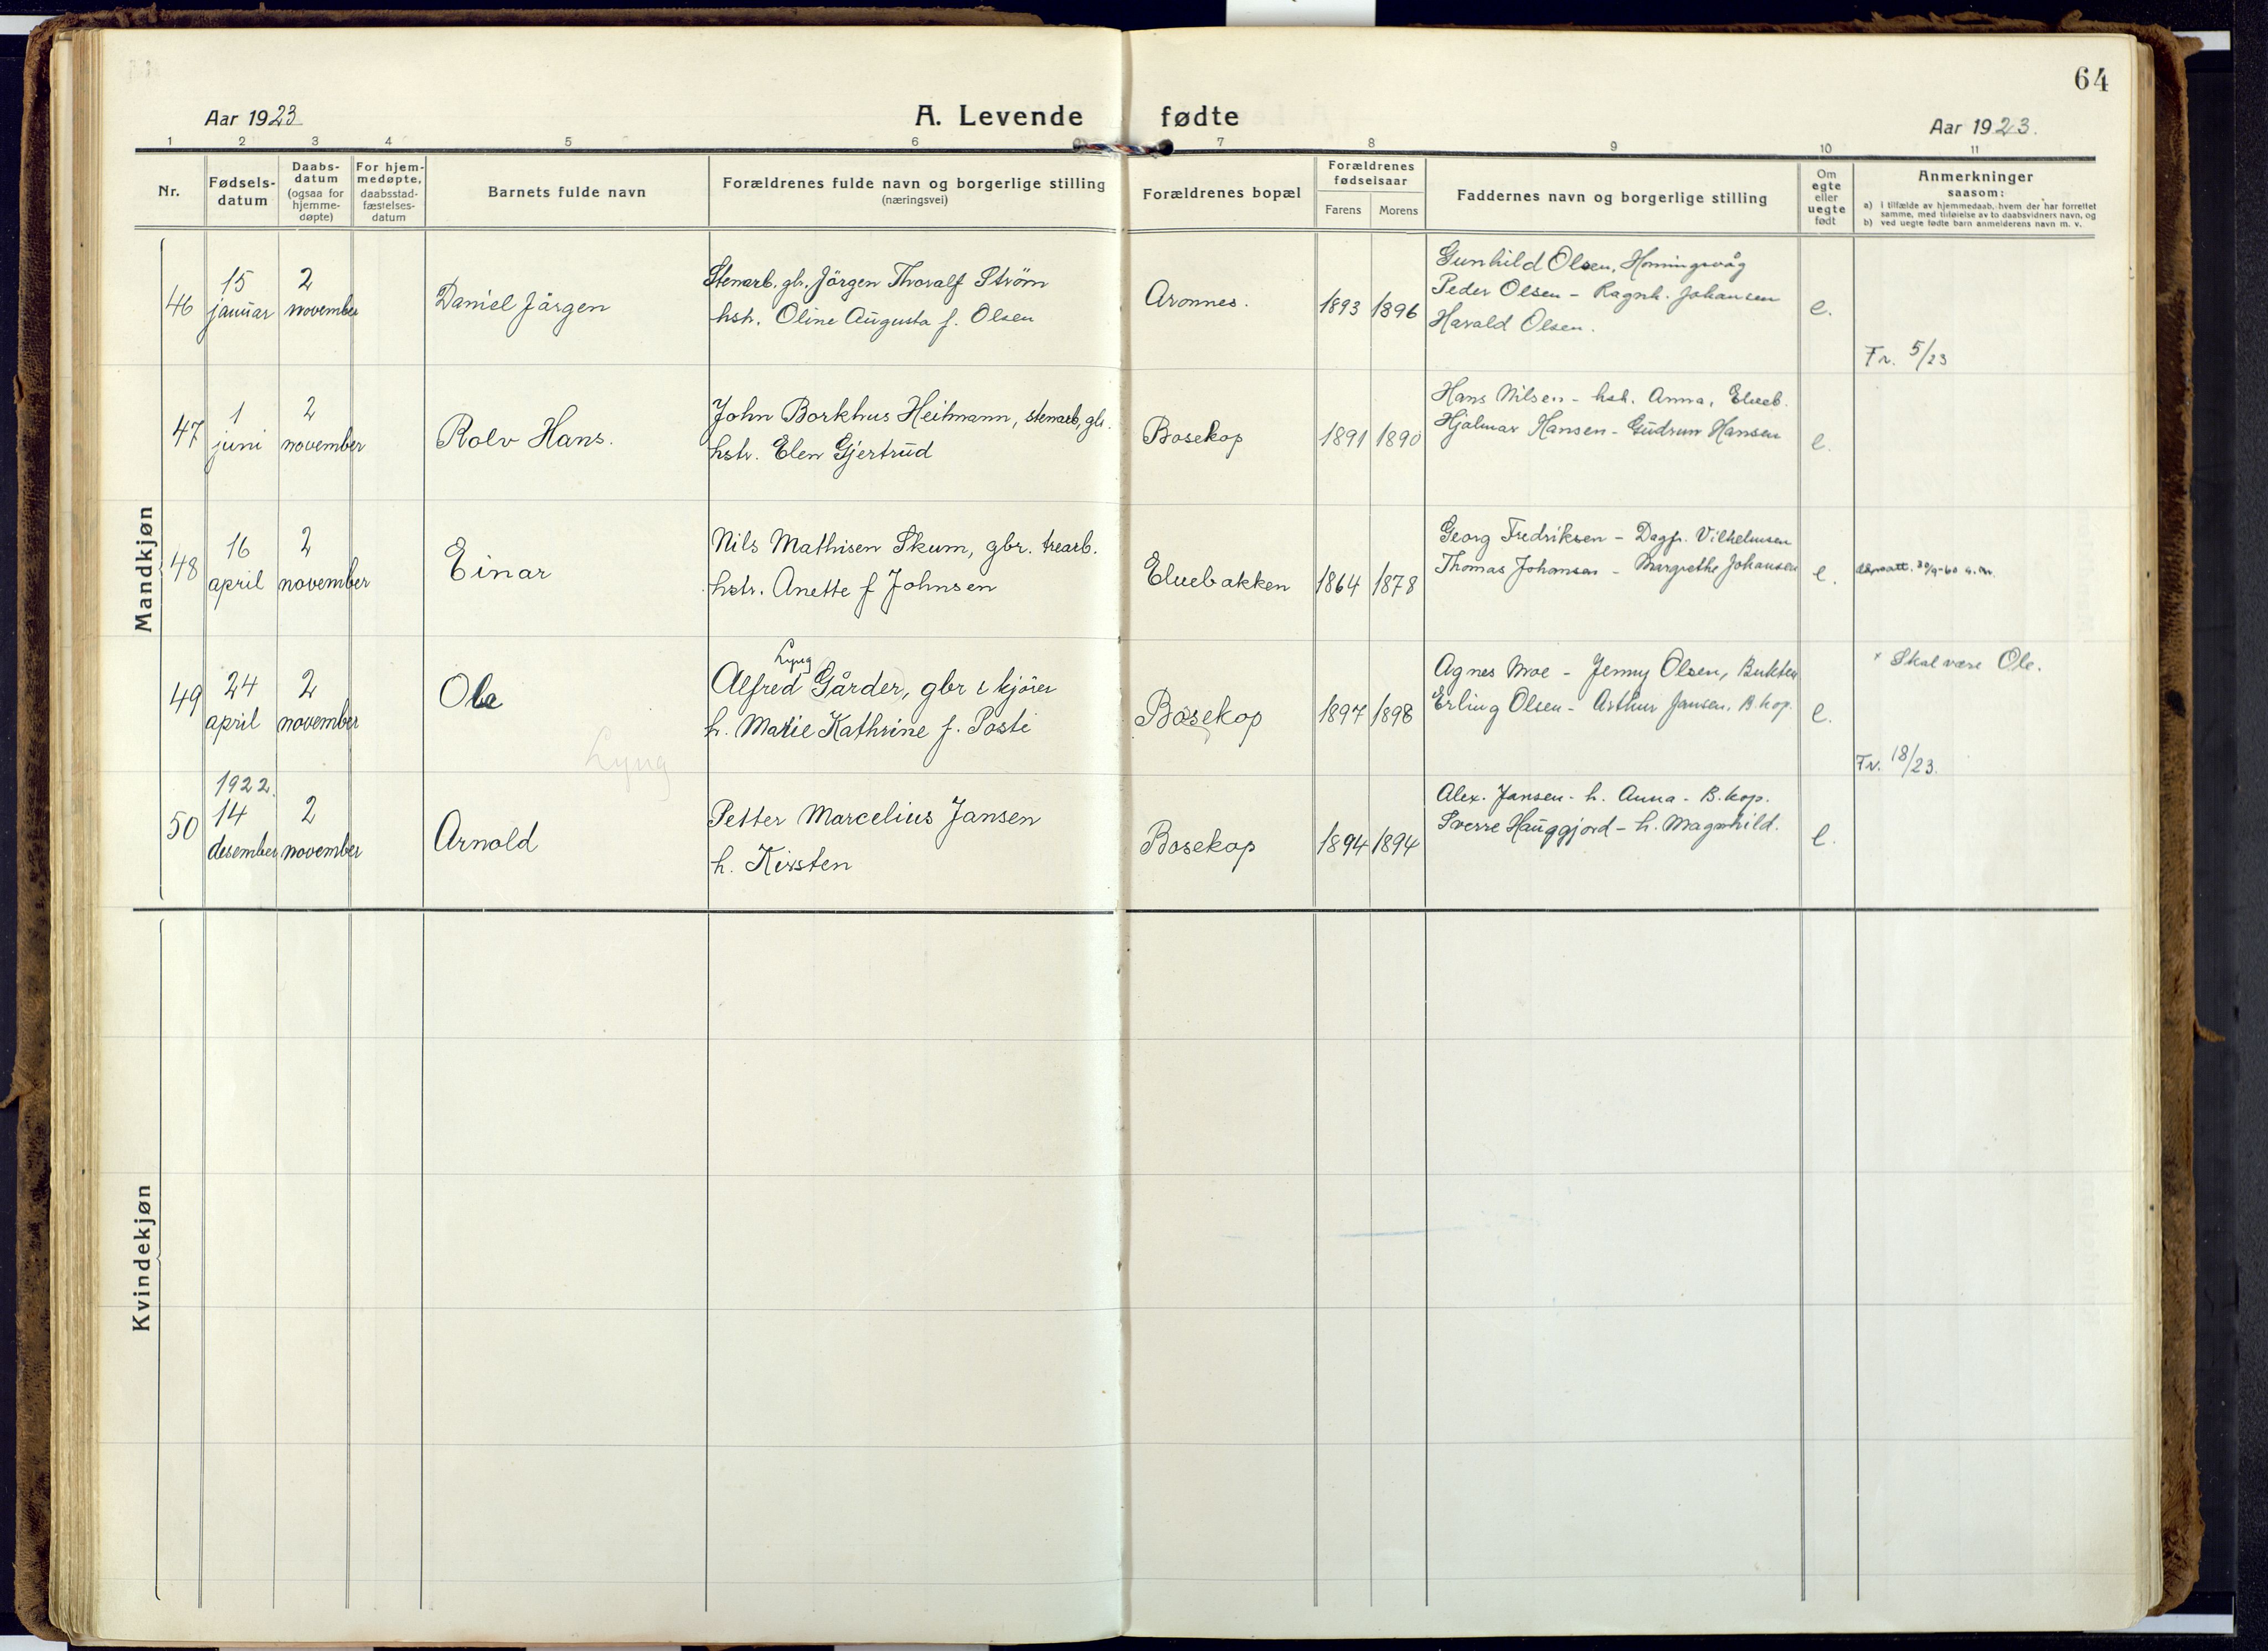 64
Aar 1923
A. Levende fødte
Aar 1923.
1 2 3 4 5 6 7 8 9 10 11
Nr.
Fødsels-
datum
Daabs-
datum
(ogsaa for
hjemme-
døpte)
For hjem-
medøpte,
daabsstad-
fæstelses-
datum
Barnets fulde navn
Forældrenes fulde navn og borgerlige stilling
(næringsvei)
Forældrenes bopæl
Forældrenes
fødselsaar
Farens Morens
Faddernes navn og borgerlige stilling
Om
egte
eller
uegte
født
Anmerkninger
saasom:
a) i tilfælde av hjemmedaab, hvem der har forrettet
samme, med tilføielse av to daabsvidners navn, og
b) ved uegte fødte barn anmelderens navn m. v.
Mandkjøn
46
15
januar
2
november
Daniel Jörgen
Stenarb. gbr. Jörgen Thoralf Ström
hstr. Oline Augusta f. Olsen
Aronnes.
1893 1896
Gunhild Olsen, Honningsvåg
Peder Olsen - Ragnh. Johansen
Harald Olsen.
e.
Fr. 5/23
47
1
juni
2
november
Rolv Hans.
John Borkhus Heitmann, stenarb, gbr.
hstr. Elen Gjertrud
Bosekop
1891 1890
Hans Nilsen - hst. Anna, Elveb.
Hjalmar Hansen - Gudrun Hansen
e.
48
16
april
2
november
Einar
Nils Mathisen Skum, gbr. trearb.
hstr. Anette f Johnsen
Elvebakken
1864 1878
Georg Fredriksen - Dagfr. Vilhelmsen
Thomas Johansen - Margrethe Johansen
e.
30/9-60
49
24
april
2
november
Ole
Lyng
Lyng
Alfred Gårder, gbr & kjörer
h. Marie Kathrine f. Posti
Bosekop
1897 1898
Agnes Moe - Jenny Olsen, Bukten
Erling Olsen - Arthur Jansen, B.kop.
e.
x Skal være Ole.
Fr. 18/23.
50
1922.
14
desember
2
november
Arnold
Petter Marcelius Jansen
h. Kirsten
Bosekop
1894 1894
Alex. Jansen - h. Anna - B.kop.
Sverre Hauggjord - h. Magnhild.
e.
Kvindekjøn